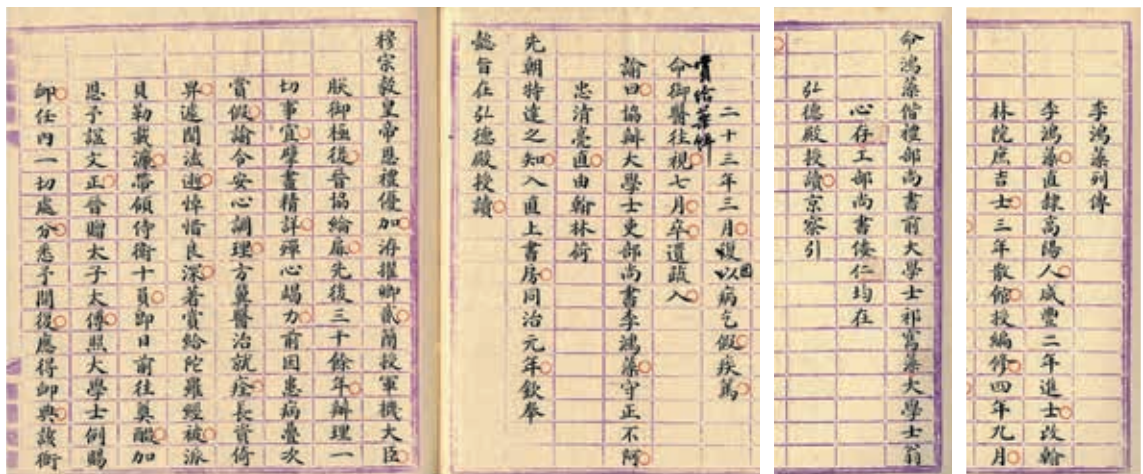 李鴻藻列傳
李鴻藻直隸高陽人咸豐二年進士改翰
林院庶吉士三年散館授編修四年九月
命鴻藻偕禮部尚書前大學士祁寯藻大學士翁
心存工部尚書倭仁均在
弘德殿授讀京察引
二十三年三月復以因病乞假疾篤
賞給葠
命御醫往視七月卒遺疏入
諭曰協辦大學士吏部尚書李鴻藻守正不阿
忠清亮直由翰林荷
先朝特達之知入直上書房同治元年欽奉
懿旨在弘德殿授讀
穆宗毅皇帝恩禮優加洊擢卿貳簡授軍機大臣
朕御極後晉協綸扉先後三十餘年辦理一
切事宜擘畫精詳殫心竭力前因患病疊次
賞假諭令安心調理方冀醫治就痊長資倚
畀遽聞溘逝悼惜良深著賞給陀羅經被派
貝勒載濂帶領侍衛十員即日前往奠醊加
恩予諡文正晉贈太子太傅照大學士例賜
卹任內一切處分悉予開復應得卹典該衙